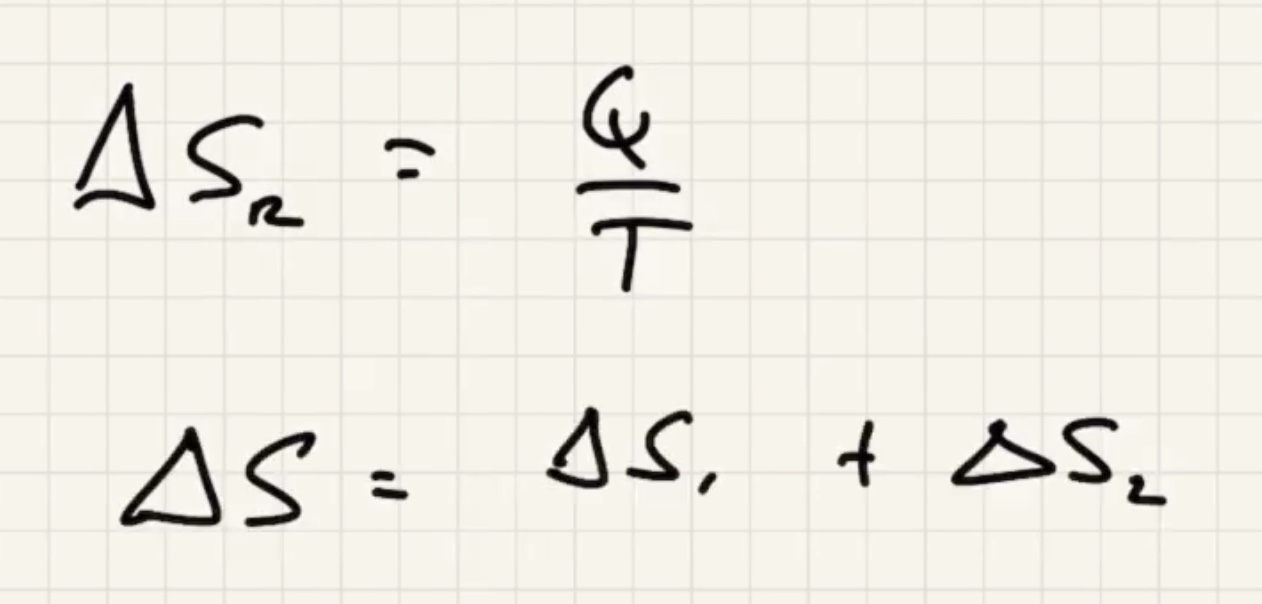 ΔS₂ = Q/T
ΔS = ΔS₁ + ΔS₂